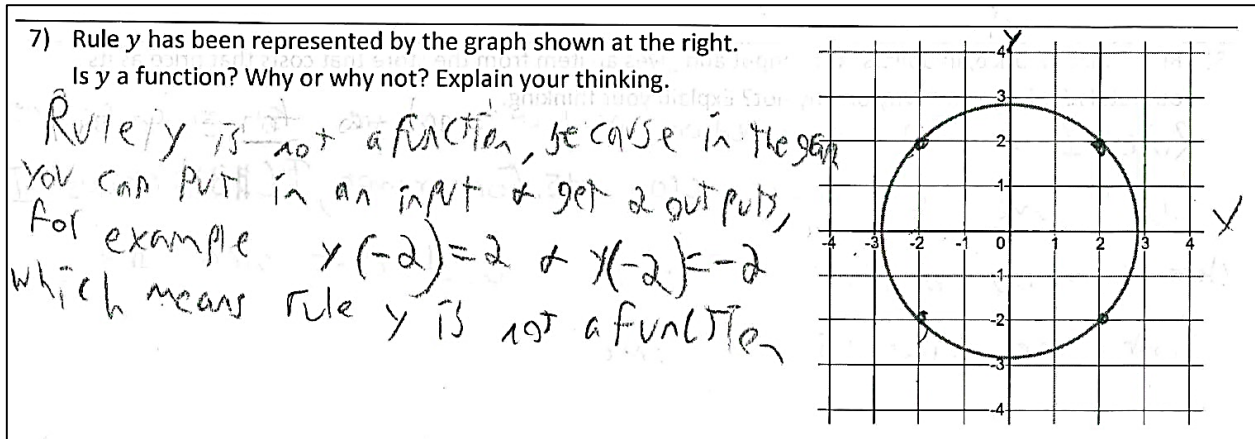 7) Rule y has been represented by the graph shown at the right.
Is y a function? Why or why not? Explain your thinking.
Rule y is not a function, because in the graph
you can put in an input & get 2 outputs,
for example y(-2)=2 & y(-2)=-2
which means rule y is not a function
y
4
3
2
1
-4 -3 -2 -1 0 1 2 3 4 x
-1
-2
-3
-4